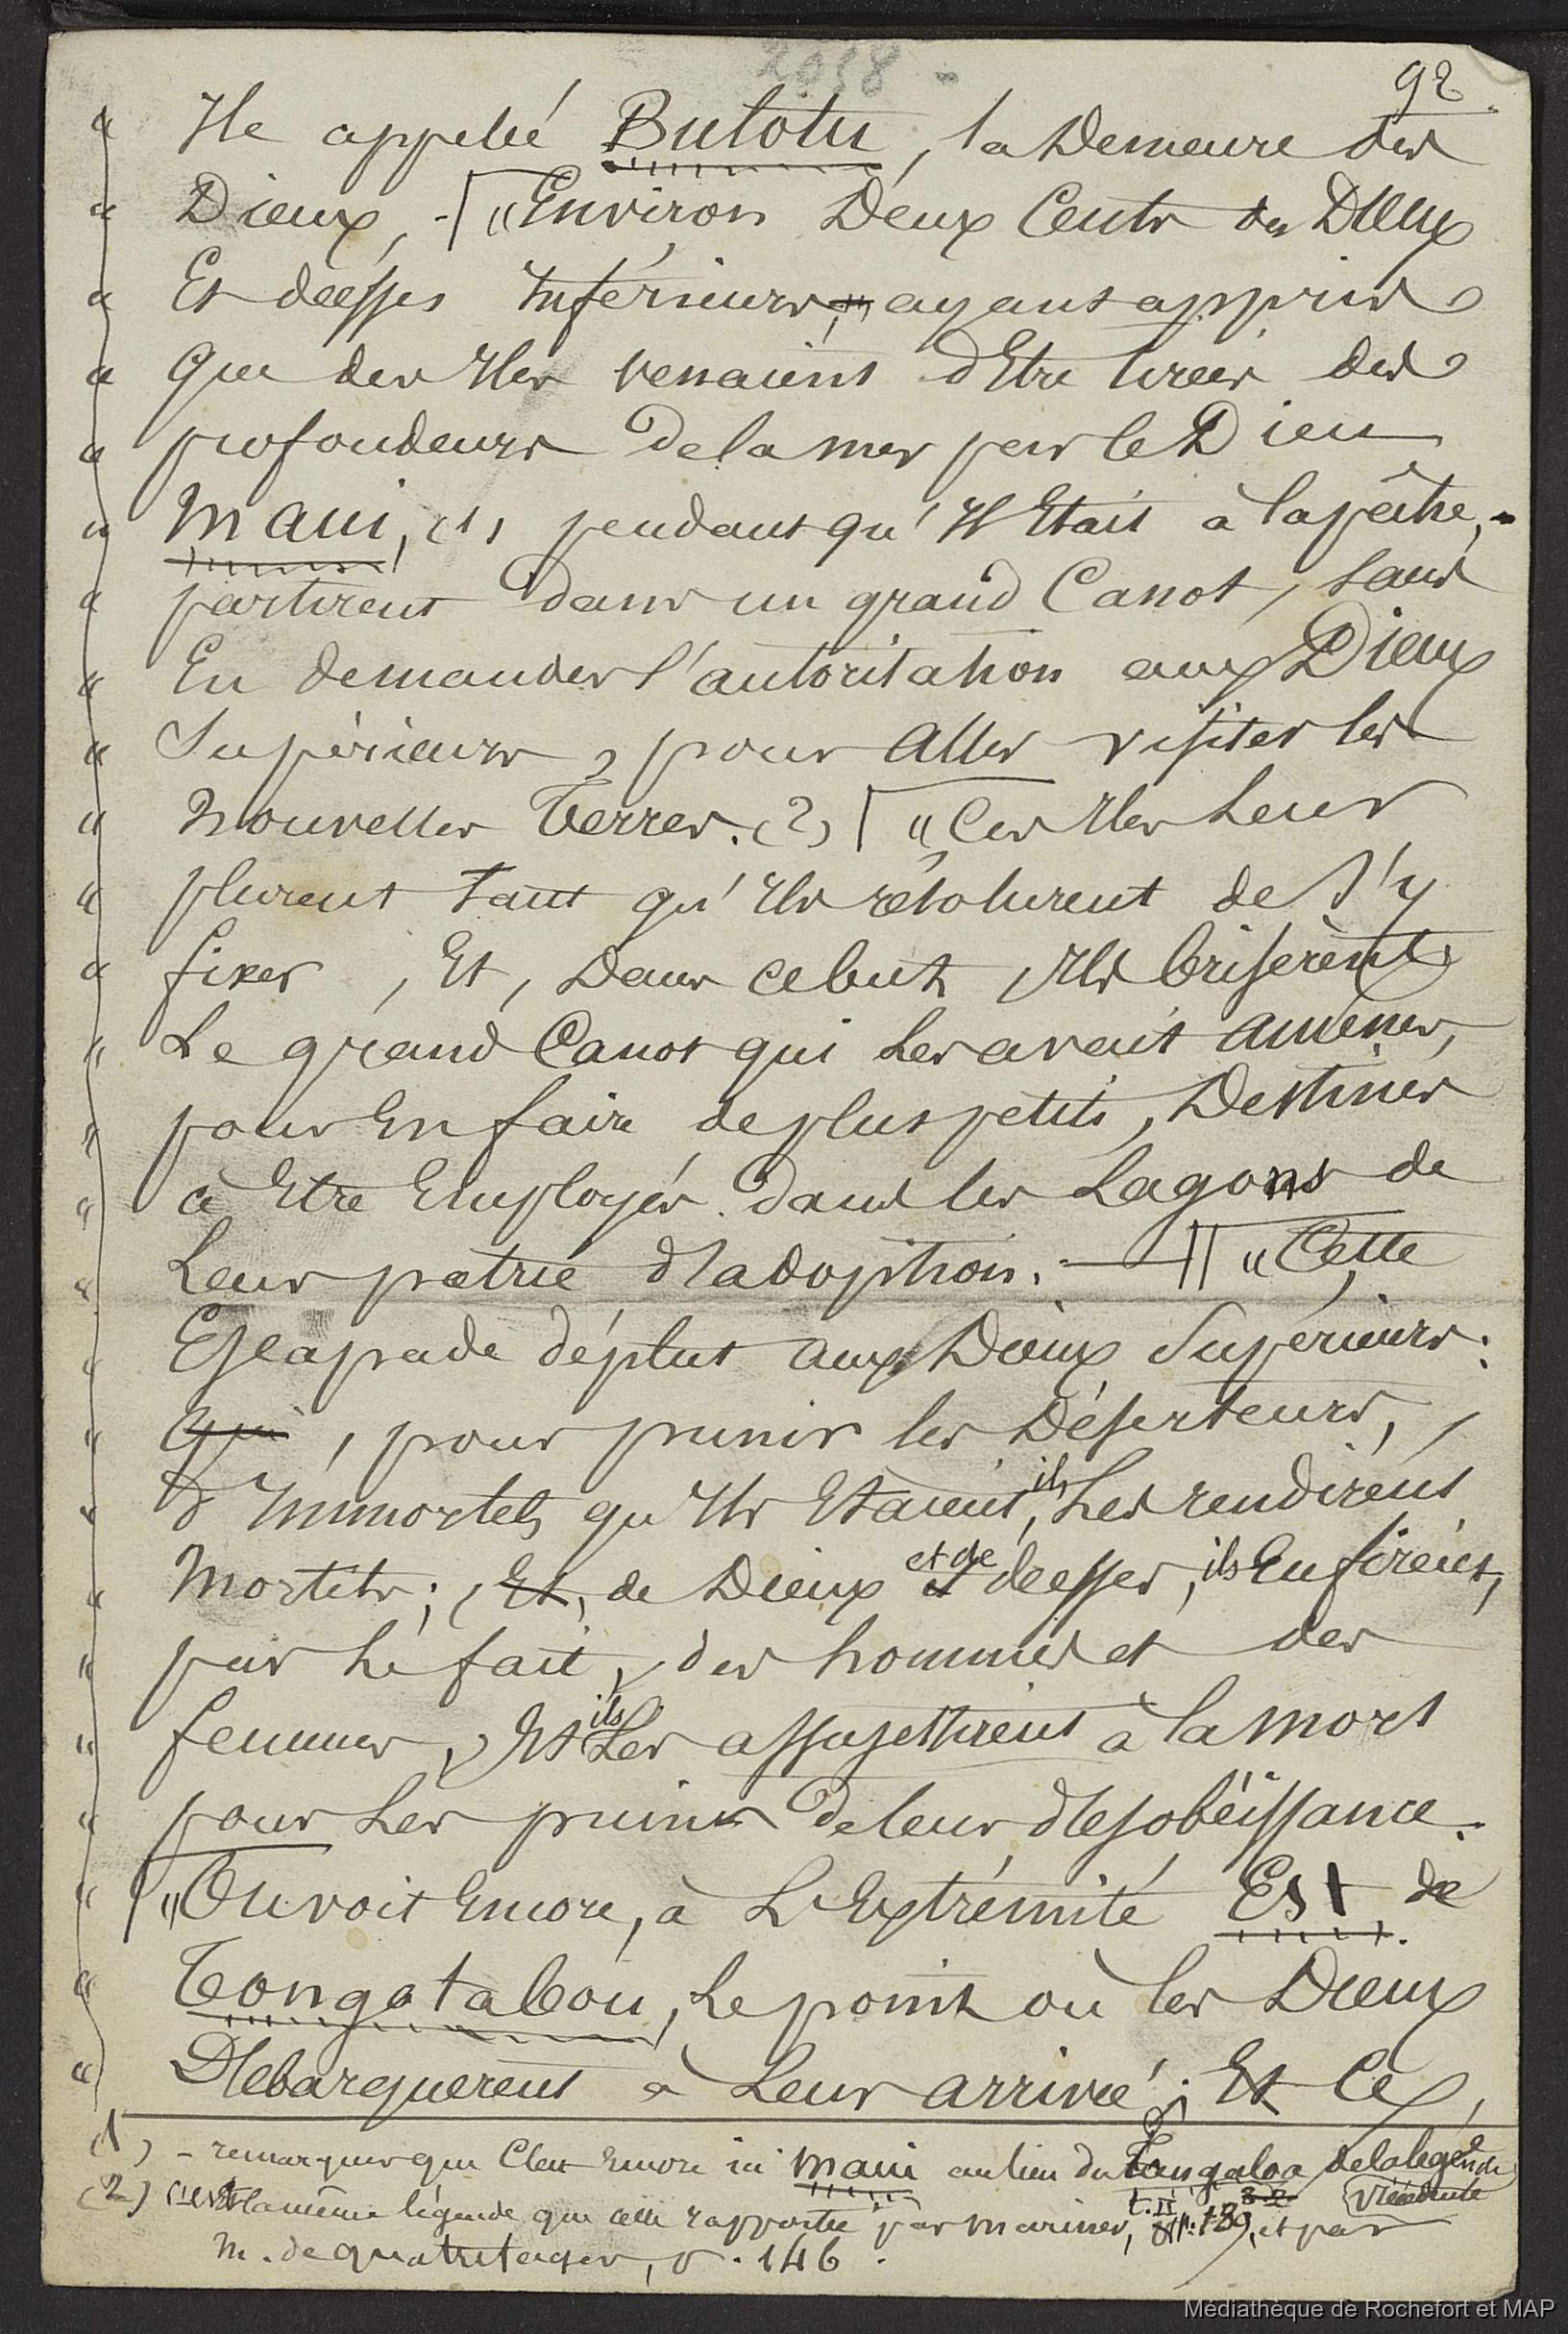 2038 -
92.
" Ile appelée Bulotu, la demeure des
" Dieux, - "Environ Deux Cents des Dieux
" Et déesses Inférieurs, ayant appris
" que des Iles venaient d'Etre tirées des
" profondeurs de la mer par le Dieu
" Maui, (1) pendant qu'Il Etait à la pêche, -
" partirent dans un grand Canot, sans
" En demander l'autorisation aux Dieux
" Supérieurs, pour Aller visiter les
" Nouvelles Terres. (2) "Ces Iles leur
" plurent tant qu'Ils résolurent de s'y
" fixer, Et, Dans ce but, Ils brisèrent
" Le grand Canot qui Les avait amenés,
" pour En faire de plus petits, Destinés
" à Etre Employés dans les Lagons de
" Leur patrie d'adoption. - "Cette
" Escapade déplut aux Dieux Supérieurs:
" Qui, pour punir les Déserteurs,
" d'Immortels qu'Ils Etaient, ils Les rendirent
" Mortels; (Et, de Dieux et de déesses, ils En firent,
" par Le fait, des hommes et des
" femmes, Et ils Les assujettirent à la mort
" pour Les punir de leur désobéissance.
" "On voit Encore, à L'Extrémité Est de
" Tongatabou, Le point où les Dieux
" Débarquèrent à Leur arrivée; Et Ce,
(1) - remarquer que C'est Encore ici Maui au lieu du Tangaloa de la légende
précédente
(2) c'est la même légende que celle rapportée par Mariner, t. II, p. 180, et par
M. de quatrefages, p. 146.
Médiathèque de Rochefort et MAP